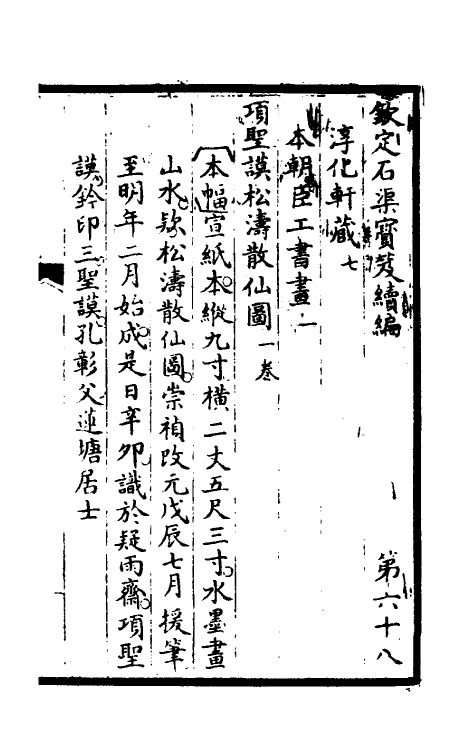 欽定石渠寶笈續編 第六十八
淳化軒藏七
本朝臣工書畫一
項聖謨松濤散仙圖一卷
本幅宣紙本縱九寸橫二丈五尺三寸水墨畫
山水欵松濤散仙圖崇禎改元戊辰七月援筆
至明年二月始成是日辛卯識於疑雨齋項聖
謨鈐印三聖謨孔彰父蓮塘居士